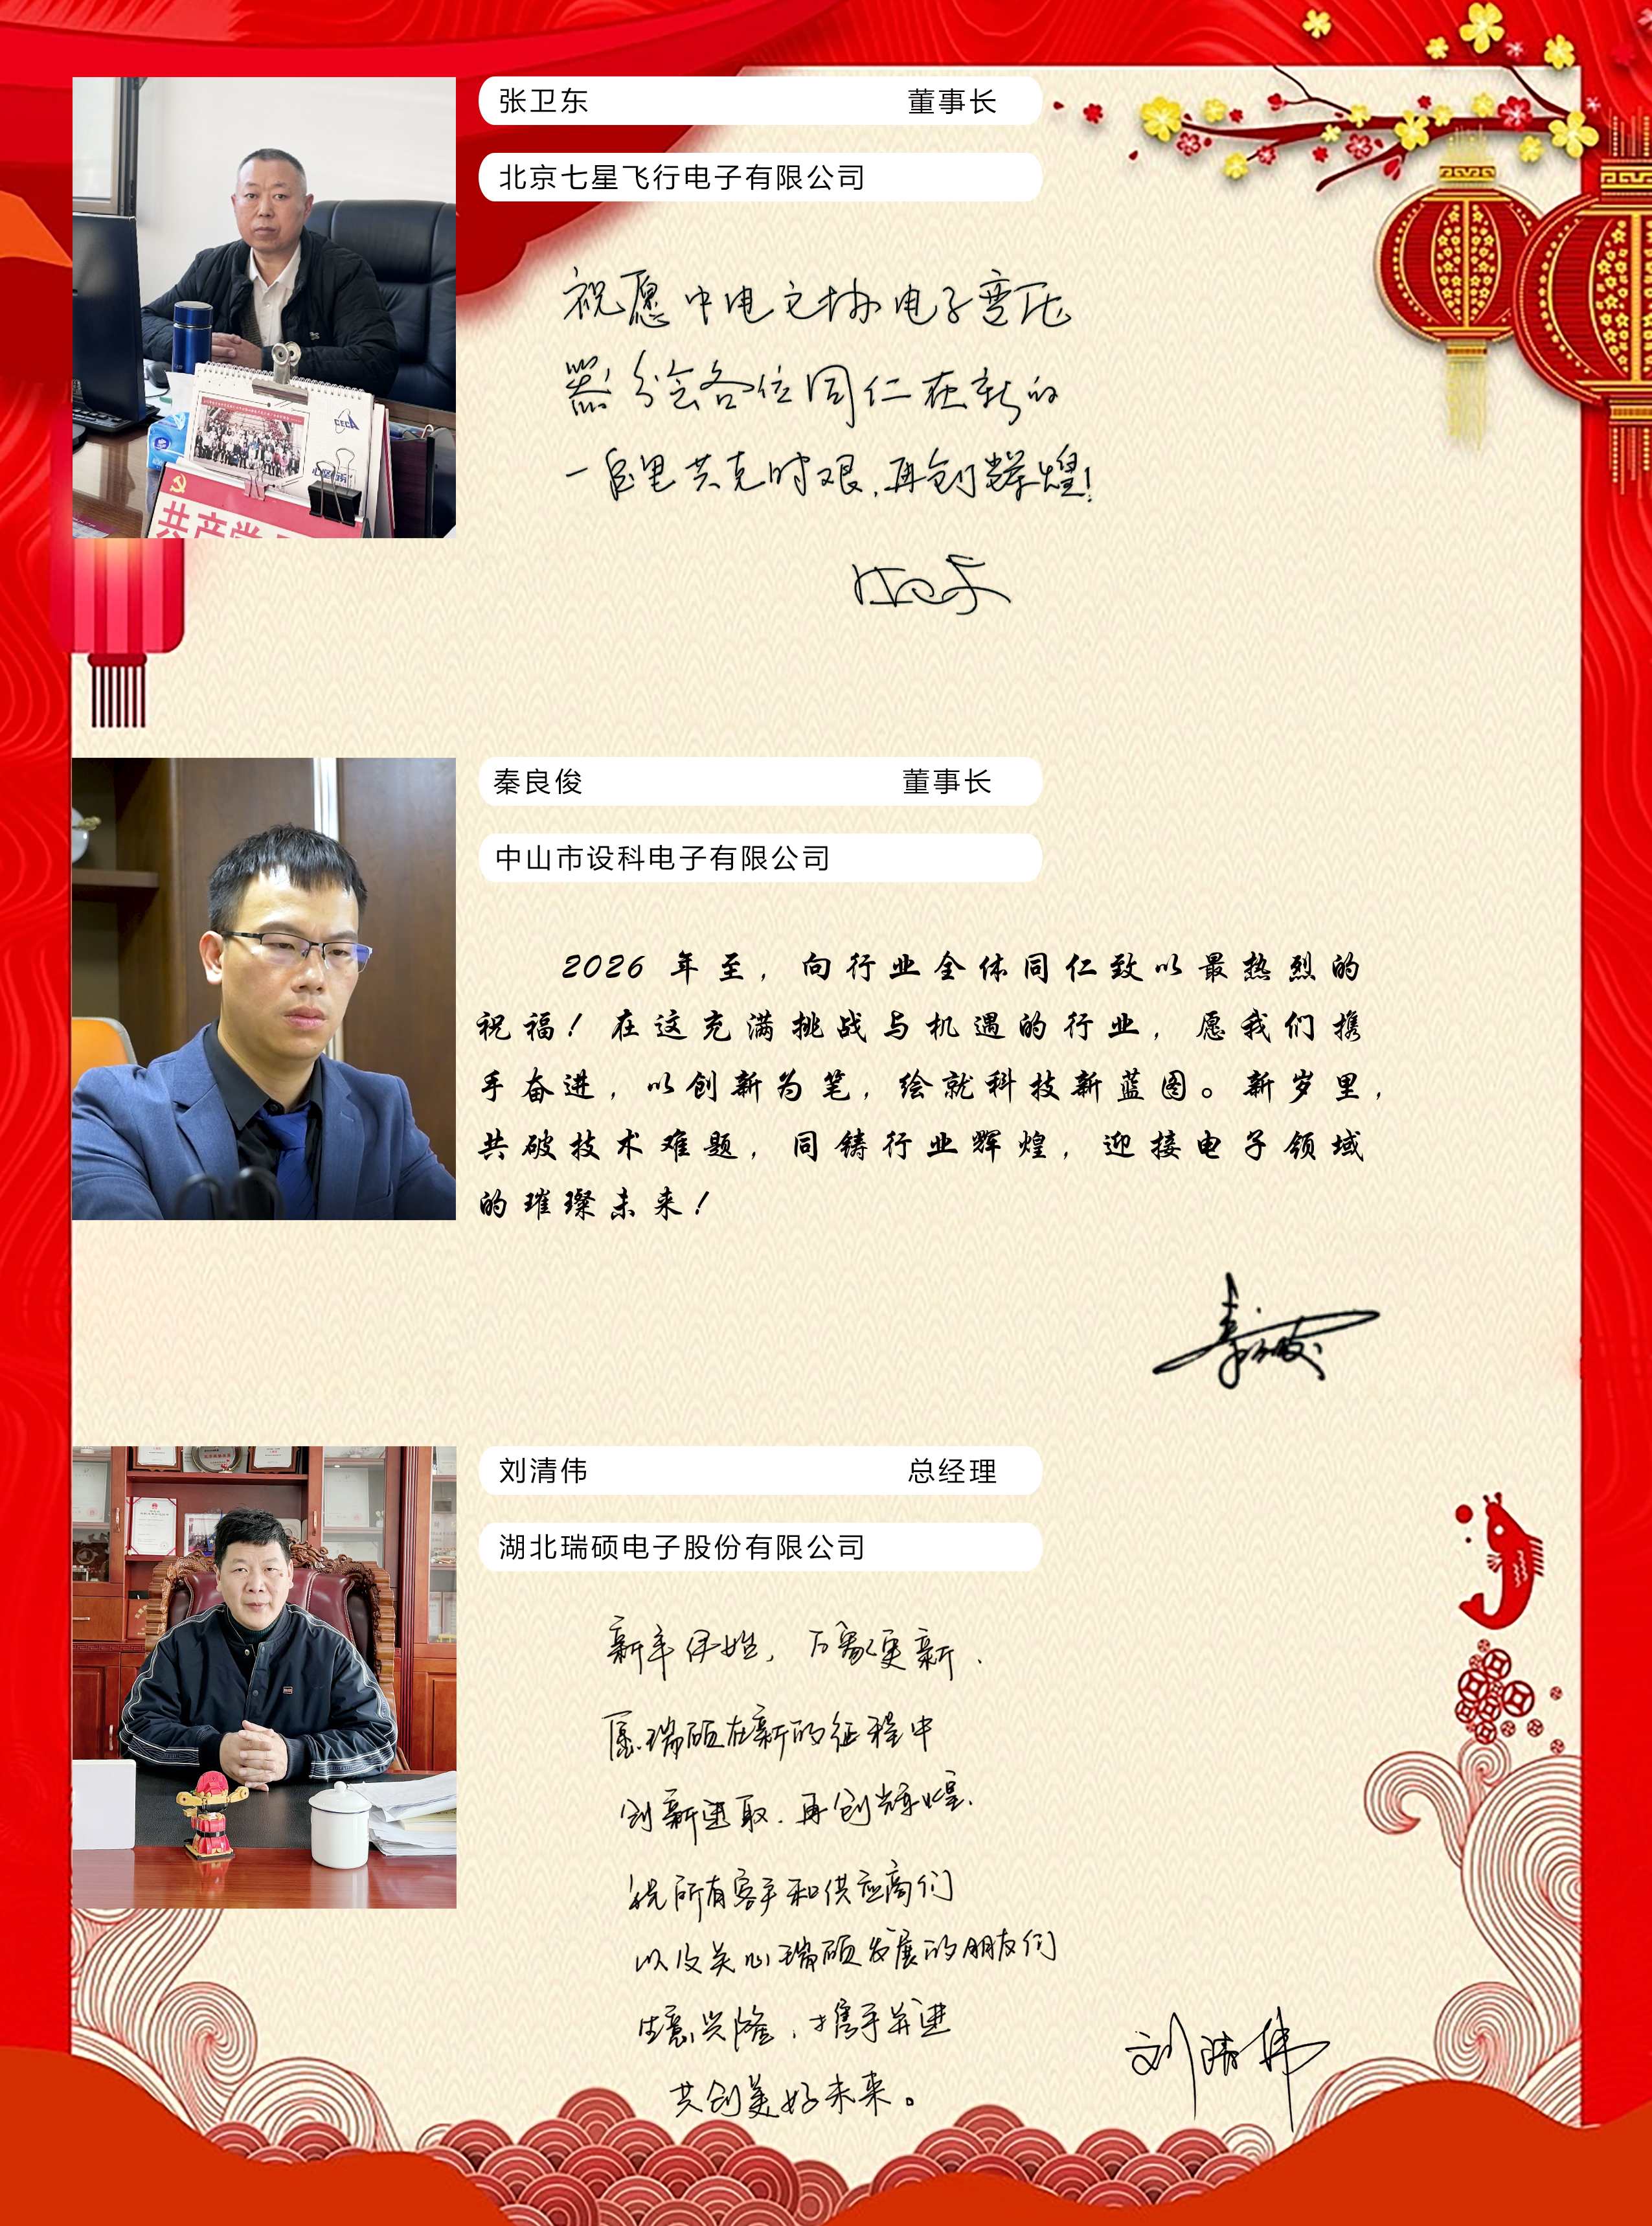 张卫东 董事长
北京七星飞行电子有限公司
祝愿中电元协电子变压
器分会各位同仁在新的
一年里共克时艰,再创辉煌!
CECA
共产党
秦良俊 董事长
中山市设科电子有限公司
2026年至,向行业全体同仁致以最热烈的
祝福!在这充满挑战与机遇的行业,愿我们携
手奋进,以创新为笔,绘就科技新蓝图。新岁里,
共破技术难题,同铸行业辉煌,迎接电子领域
的璀璨未来!
刘清伟 总经理
湖北瑞硕电子股份有限公司
新年伊始,万象更新.
愿瑞硕在新的征程中
创新进取.再创辉煌.
祝所有客户和供应商们
以及关心瑞硕发展的朋友们
生意兴隆,携手并进
共创美好未来。
刘清伟